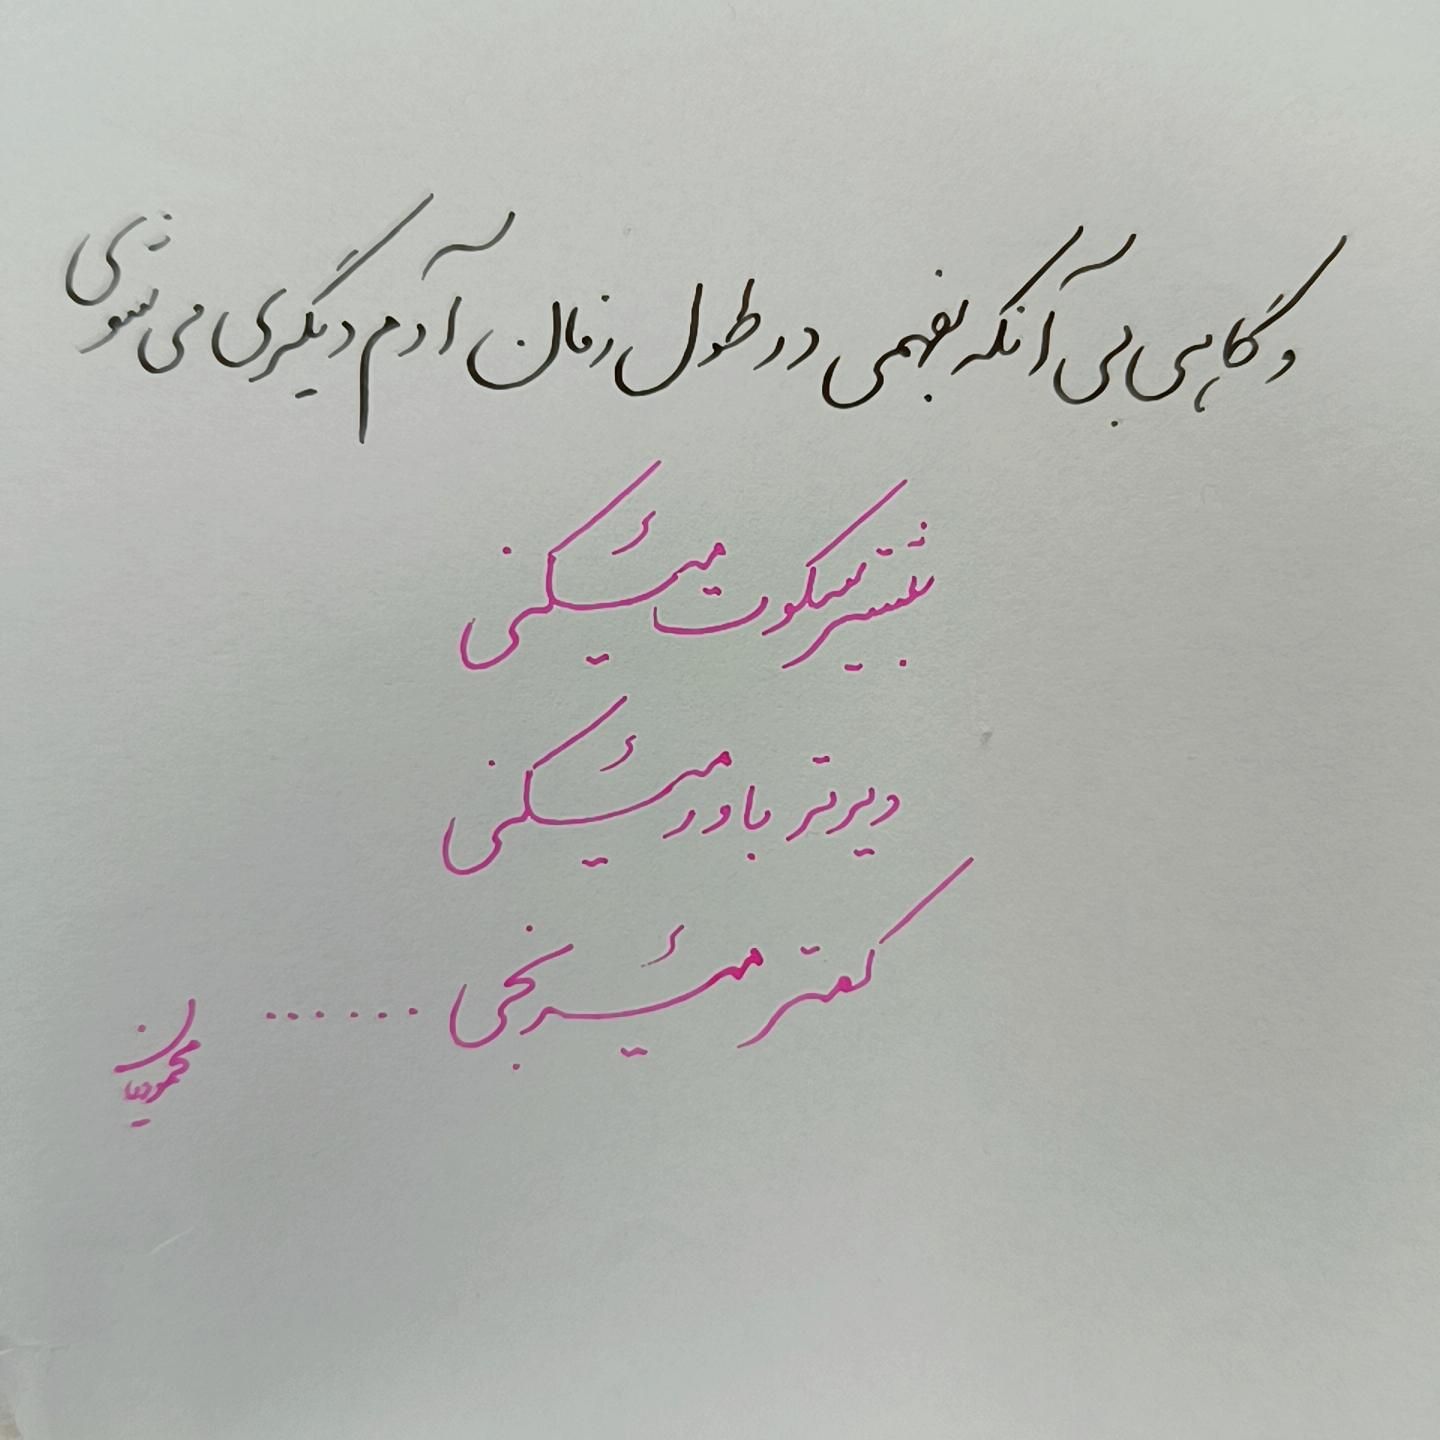 و گاهی بی آنکه بفهمی در طول زمان آدم دیگری می شوی
بیشتر سکوت میکنی
دیرتر باور میکنی
کمتر میرنجی ......
محمودیان